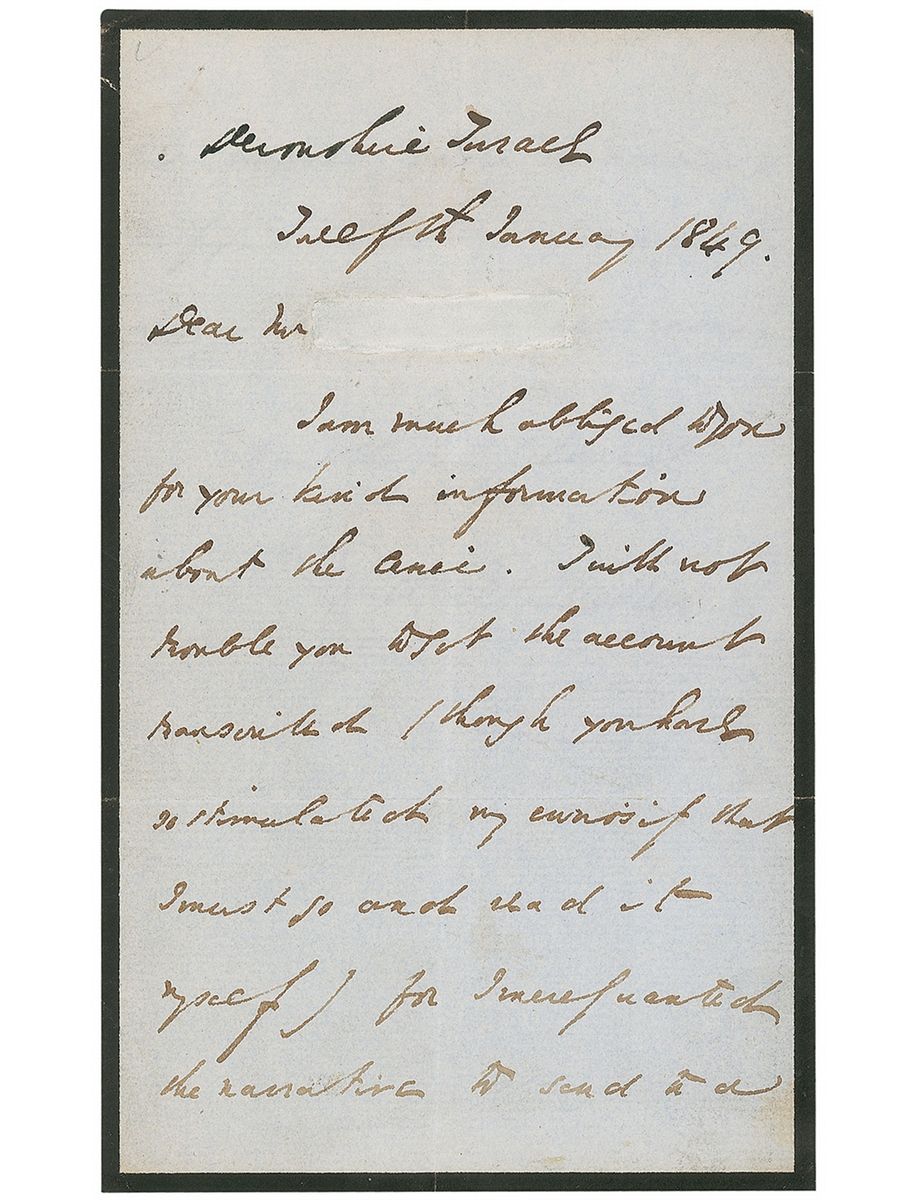 Devonshire Terrace
Twelfth January 1849.
Dear Mr
I am much obliged to you
for your kind information
about the
. I will not
trouble you to get the account
transcribed (though you have
so stimulated my curiosity that
I must go and read it
myself) for I merely wanted
the narrative to send to a